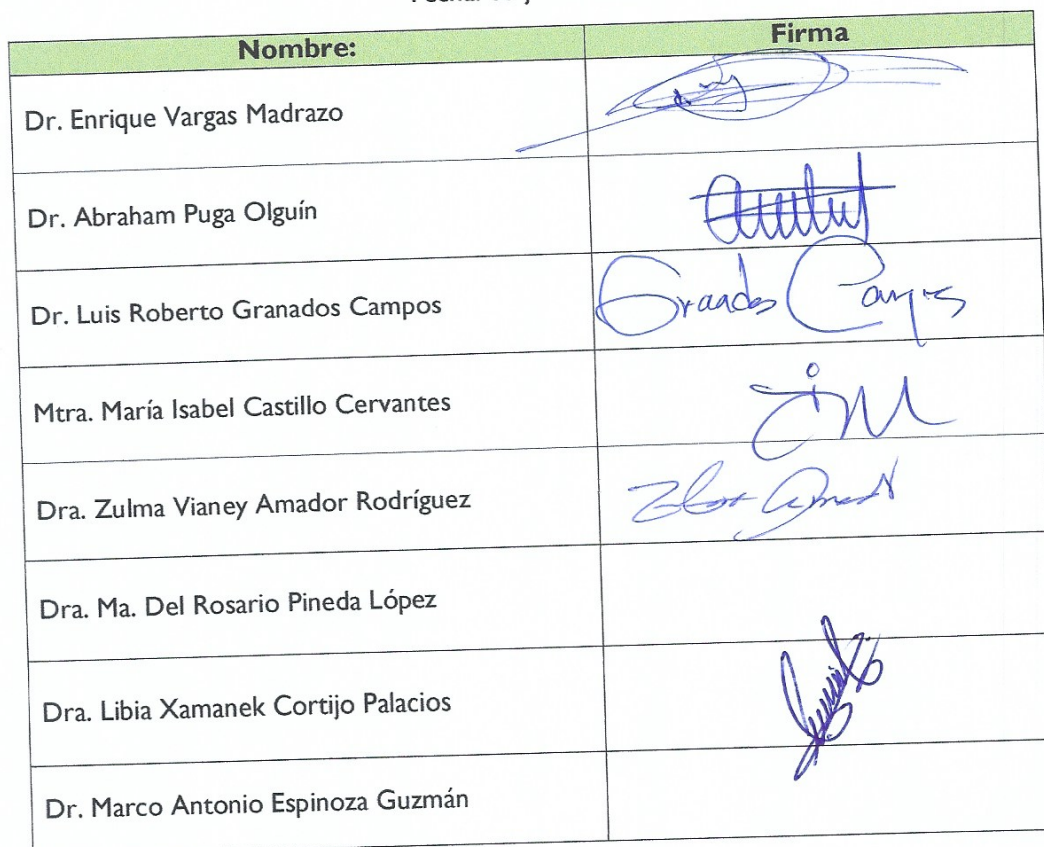 Nombre: Firma
Dr. Enrique Vargas Madrazo
Dr. Abraham Puga Olguín
Dr. Luis Roberto Granados Campos
Mtra. María Isabel Castillo Cervantes
Dra. Zulma Vianey Amador Rodríguez
Dra. Ma. Del Rosario Pineda López
Dra. Libia Xamanek Cortijo Palacios
Dr. Marco Antonio Espinoza Guzmán